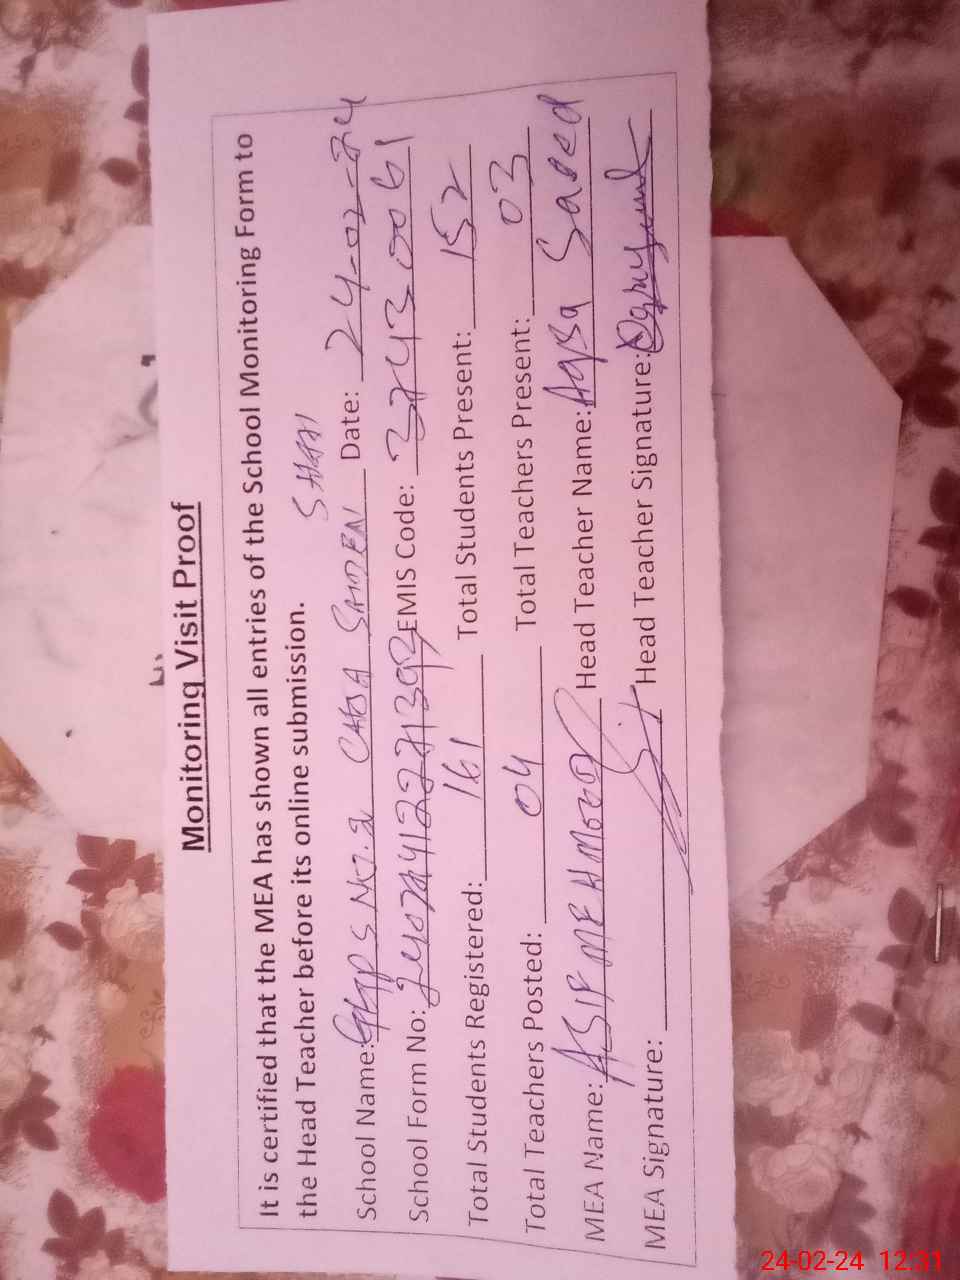 Monitoring Visit Proof
It is certified that the MEA has shown all entries of the School Monitoring Form to
the Head Teacher before its online submission.
SHAHI
School Name: GGPS No.2 SAIDEN Date: 24-02-24
School Form No: EMIS Code: 32430061
Total Students Registered: 161 Total Students Present: 152
Total Teachers Posted: 04 Total Teachers Present: 03
MEA Name: ASIF MEHMOOD Head Teacher Name: Aqsa Saeed
MEA Signature: Head Teacher Signature:
24-02-24 12:31